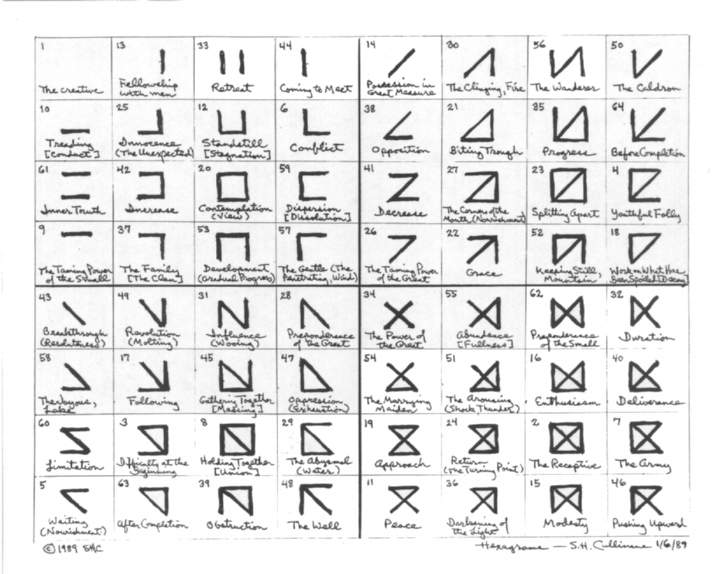 1 13 33 44 14 30 56 50
The creative
Fellowship with men
Retreat
Coming to Meet
Possession in Great Measure
The Clinging, Fire
The Wanderer
The Caldron
10 25 12 6 38 21 35 64
Treading [Conduct]
Innocence (The Unexpected)
Standstill [Stagnation]
Conflict
Opposition
Biting Through
Progress
Before Completion
61 42 20 59 41 27 23 4
Inner Truth
Increase
Contemplation (View)
Dispersion [Dissolution]
Decrease
The Corners of the Mouth (Nourishment)
Splitting Apart
Youthful Folly
9 37 53 57 26 22 52 18
The Taming Power of the Small
The Family [The Clan]
Development (Gradual Progress)
The Gentle (The Penetrating, Wind)
The Taming Power of the Great
Grace
Keeping Still, Mountain
Work on What Has Been Spoiled [Decay]
43 49 31 28 34 55 62 32
Breakthrough (Resoluteness)
Revolution (Molting)
Influence (Wooing)
Preponderance of the Great
The Power of the Great
Abundance [Fullness]
Preponderance of the Small
Duration
58 17 45 47 54 51 16 40
The Joyous, Lake
Following
Gathering Together [Massing]
Oppression (Exhaustion)
The Marrying Maiden
The Arousing (Shock, Thunder)
Enthusiasm
Deliverance
60 3 8 29 19 24 2 7
Limitation
Difficulty at the Beginning
Holding Together [Union]
The Abysmal (Water)
Approach
Return (The Turning Point)
The Receptive
The Army
5 63 39 48 11 36 15 46
Waiting (Nourishment)
After Completion
Obstruction
The Well
Peace
Darkening of the Light
Modesty
Pushing Upward
© 1989 SHC
Hexagrams — S.H. Cullinane 1/6/89